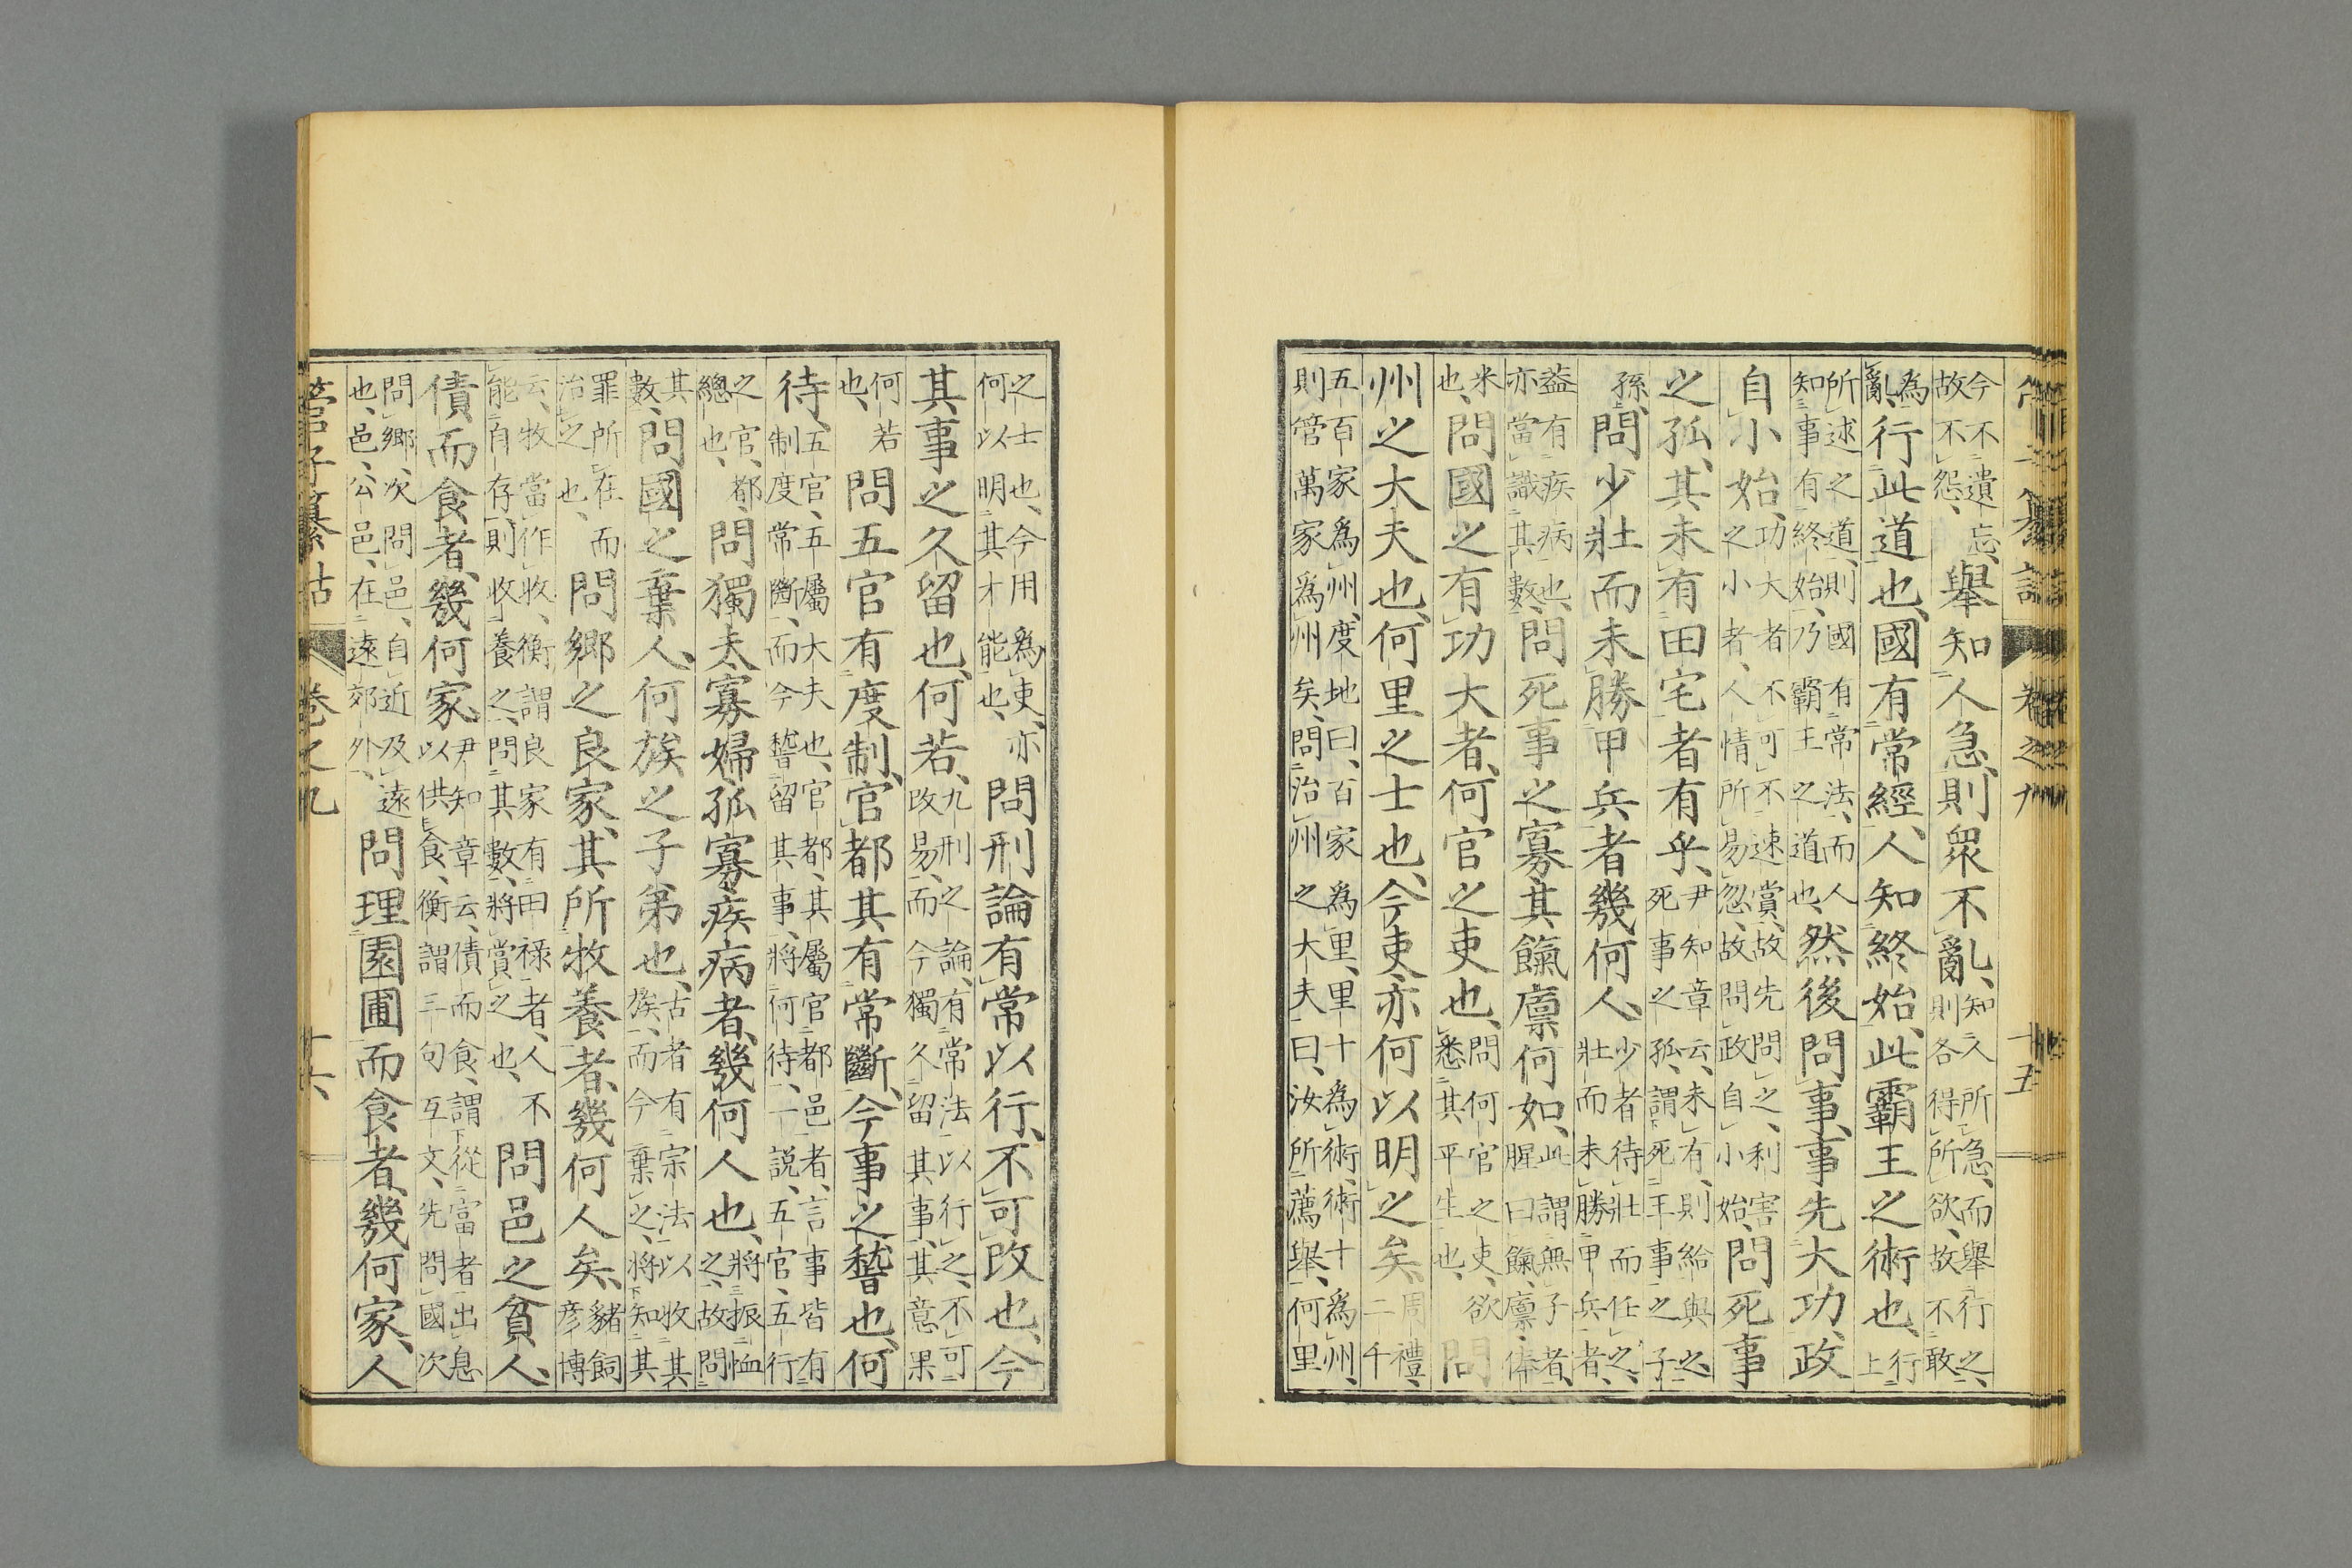 管子纂詁 卷之九 十五
今不遺忘、故不怨、舉知人急、則眾不亂、知人所急、而舉行之、則各得所欲、故不敢
為亂、行此道也、國有常經、人知終始、此霸王之術也、行上
所述之道、則國有常法、而人知事有終始、乃霸王之道也、然後問事、事先大功、政
自小始、功大者不可不速賞、故先問之、利害之小者、人情所易忽、故問政自小始、問死事
之孤、其未有田宅者有乎、尹知章云、未有、則給與之、死事之孤、謂死王事之子
孫、問少壯而未勝甲兵者幾何人、少者待壯而任之、壯而未勝甲兵者、
蓋有疾病也、亦當識其數、問死事之寡、其餼廩何如、此謂無子者、腥曰餼、廩、俸
米也、問國之有功大者、何官之吏也、問何官之吏、欲悉其平生也、問
州之大夫也、何里之士也、今吏、亦何以明之矣、周禮、二千
五百家為州、度地曰、百家為里、里十為術、術十為州、則管萬家為州矣、問治州之大夫曰、汝所薦舉、何里
之士也、今用為吏、亦何以明其才能也、問刑論有常以行、不可改也、今
其事之久留也、何若、九刑之論、有常法以行之、不可改易、而今獨久留其事、其意果
何若也、問五官有度制、官都其有常斷、今事之稽也、何
待、五官、五屬大夫也、官都、其屬官都邑者、言事皆有制度常斷、而今稽留其事、將何待、一說、五官、五行
之官、都總也、問獨夫寡婦孤寡疾病者、幾何人也、將振恤之、故問
其數、問國之棄人、何族之子弟也、古者有宗法、以收其族、而今棄之、將知其
罪所在而治之也、問鄉之良家、其所牧養者、幾何人矣、豬飼彥博
云、牧當作收、衡謂良家有田祿者、人不能自存、則收養之、問其數、將賞之也、問邑之貧人、
債而食者、幾何家、尹知章云、債而食、謂從富者出息以供食、衡謂三句互文、先問國次
問鄉、次問邑、自近及遠也、邑、公邑、在遠郊外、問理園圃而食者、幾何家、人
管子纂詁 卷之九 十六